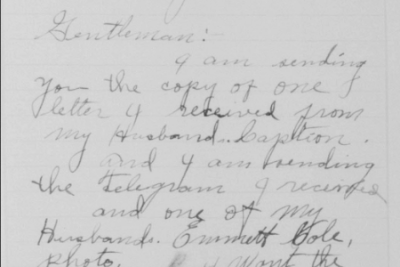 Gentleman:
I am sending
you the copy of one
letter I received from
my Husband. Caption.
and I am sending
the telegram I received
and one of my
Husbands. Emmett Cole,
Photo. want the